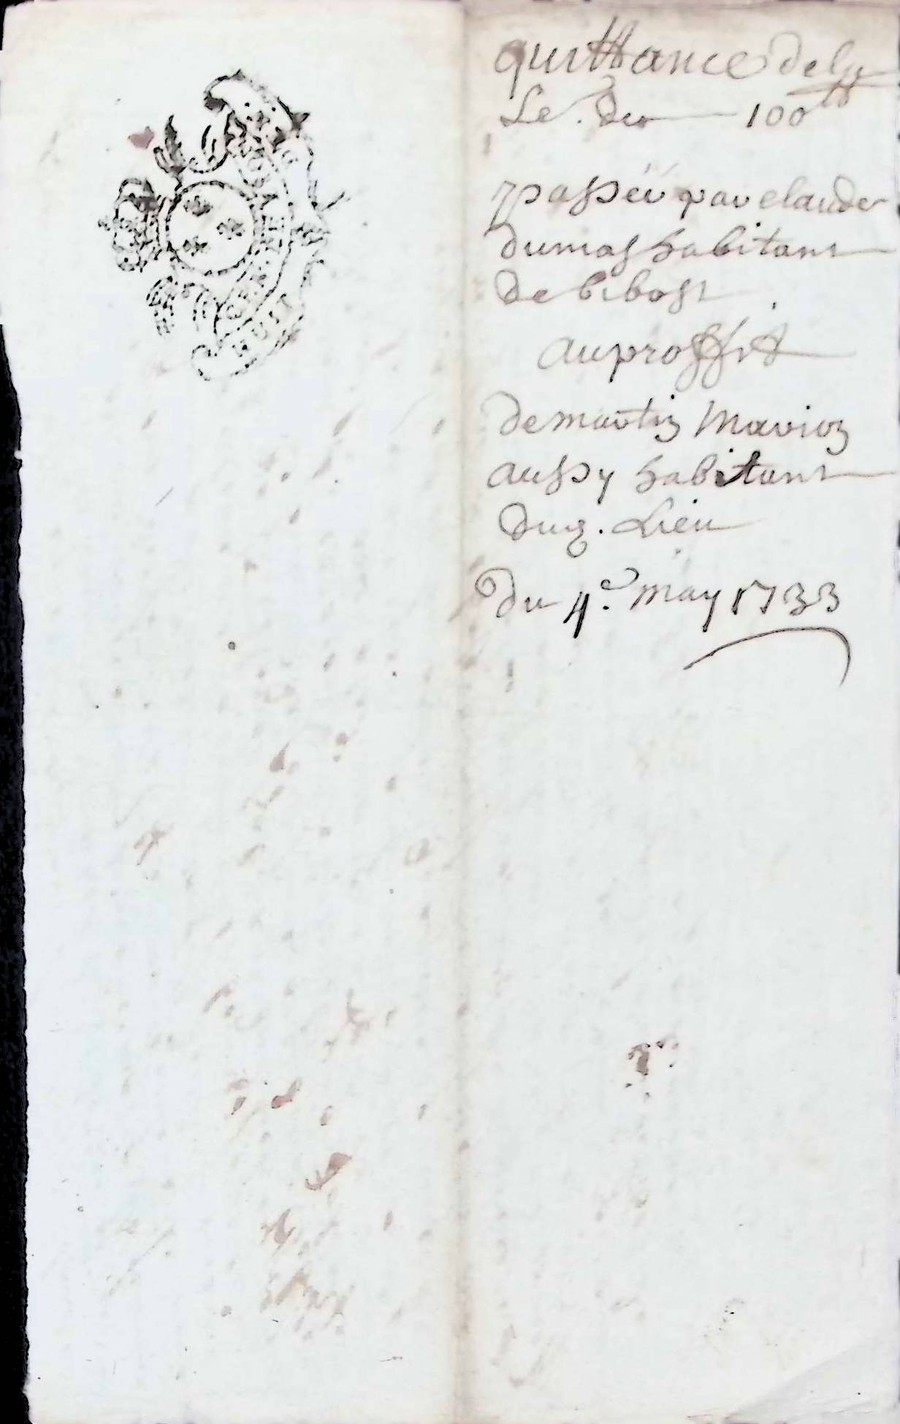 quittance de la
Le. de 100ᵗᵗ
passéé par claude
dumas habitant
de bibost
au proffit
de martin Marion
aussy habitant
dud. Lieu
du 4ᵉ. may 1733
HUIT